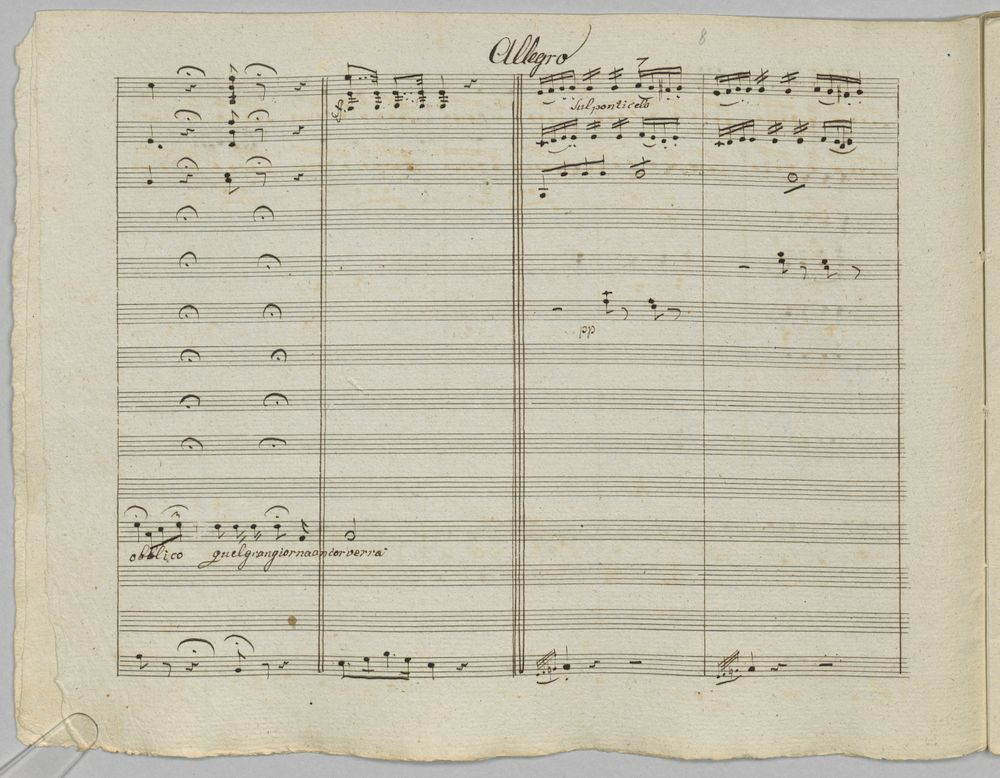 8
Allegro
7
Sul ponticello
pp
obblico quel gran giorno ancor verrà